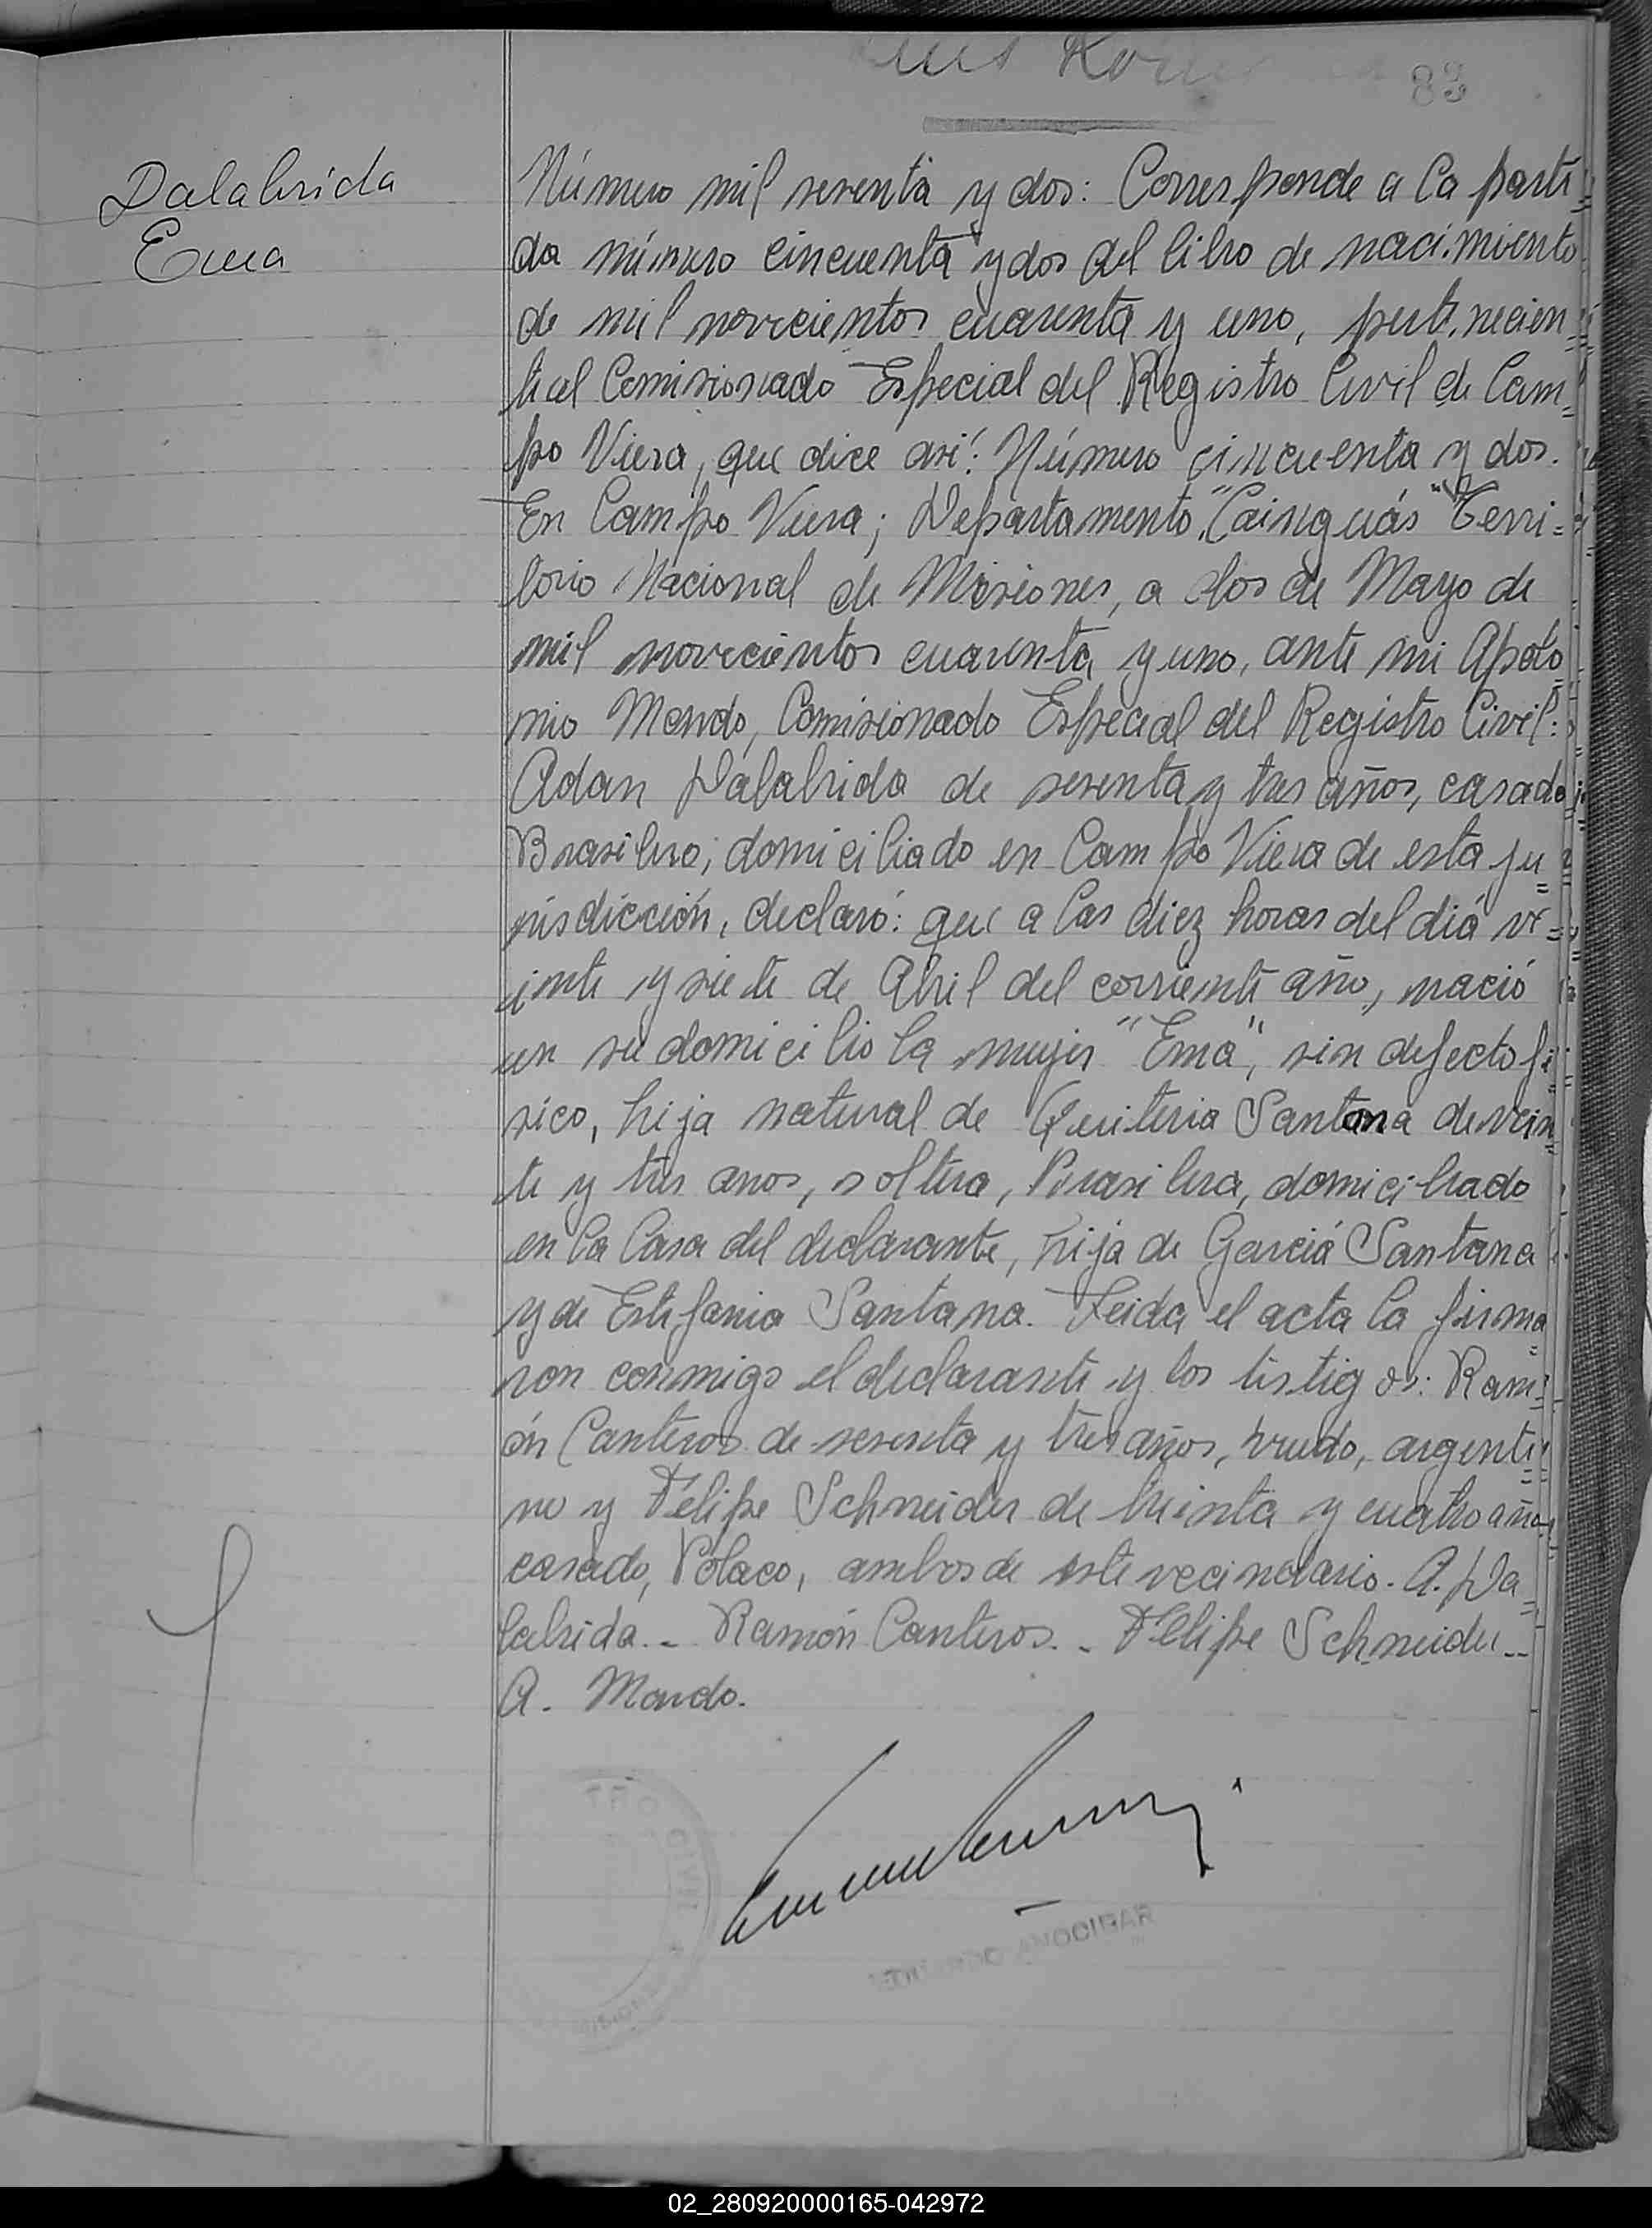 83
Dalabrida
Ema
Número mil sesenta y dos: Corresponde a la parti=
da número cincuenta y dos del libro de nacimiento
de mil novecientos cuarenta y uno, pertenecien=
te al Comisionado Especial del Registro Civil de Cam=
po Viera, que dice así: Número cincuenta y dos.
En Campo Viera; Departamento, "Cainguás" Terri=
torio Nacional de Misiones, a dos de Mayo de
mil novecientos cuarenta y uno, ante mi Apolo
nio Mendo, Comisionado Especial del Registro Civil:
Adan Dalabrida de sesenta y tres años, casado
Brasilero; domiciliado en Campo Viera de esta ju=
risdicción, declaró: que a las diez horas del diá ve=
inte y siete de Abril del corriente año, nació
en su domicilio la mujer "Ema", sin defecto fí
sico, hija natural de Quiteria Santana de vein
te y tres anos, soltera, Brasilera, domiciliado
en la Casa del declarante, hija de Garciá Santana
y de Estefania Santana. Leida el acta la firma=
ron conmigo el declarante y los testigos: Ram=
ón Canteros de sesenta y tres años, viudo, argenti=
no y Felipe Schneider de treinta y cuatro años
casado, Polaco, ambos de este vecindario. A. Da=
labrida. - Ramón Canteros. - Felipe Schneider--
A. Mendo.
CIVIL
ANOCIBAR
02_280920000165-042972